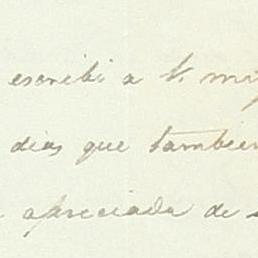 escribi a V. mi
dias que tambien
apreciada de